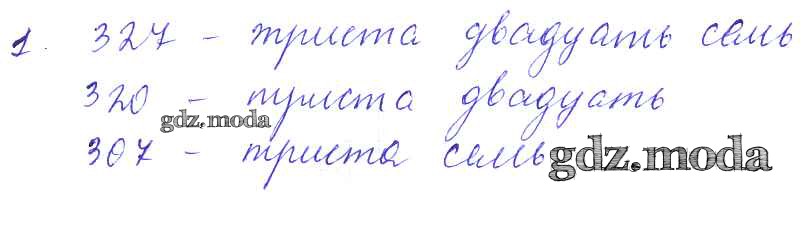 1. 327 - триста двадцать семь
320 - триста двадцать
gdz.moda
307 - триста семь
gdz.moda